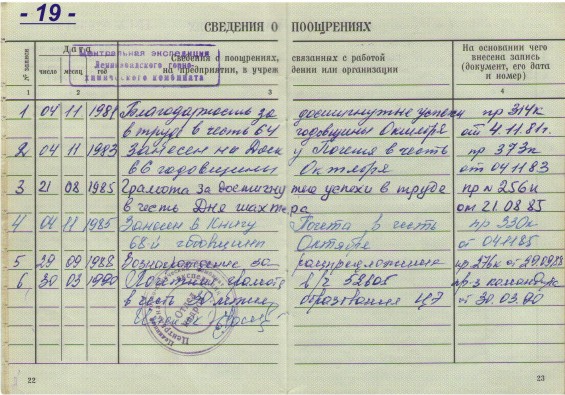 - 19 -
СВЕДЕНИЯ О ПООЩРЕНИЯХ
№ записи
Дата
число
месяц
год
Центральная экспедиция
Ленинабадского горно-
химического комбината
Сведения о поощрениях, связанных с работой
на предприятии, в учреждении или организации
На основании чего
внесена запись
(документ, его дата
и номер)
1 2 3 4
1 04 11 1981 Благодарность за достигнутые успехи пр 314к
в труде в честь 64 годовщины Октября от 4.11.81г.
2 04 11 1983 Занесен на Доск у Почета в честь пр 373к
66 годовщины Октября от 041183
3 21 08 1985 Грамота за достигну тые успехи в труде пр № 256к
в честь Дня шахтера от 21.08.85
4 04 11 1985 Занесен в Книгу Почета в честь пр 330к
68й годовщины Октября от 041185
5 29 09 1988 Вознаграждение за от 290988
6 30 03 1990 Почетная грамота в/ч 52605
в честь 30 летия образования ЦЭ от 30.03.90
22
23